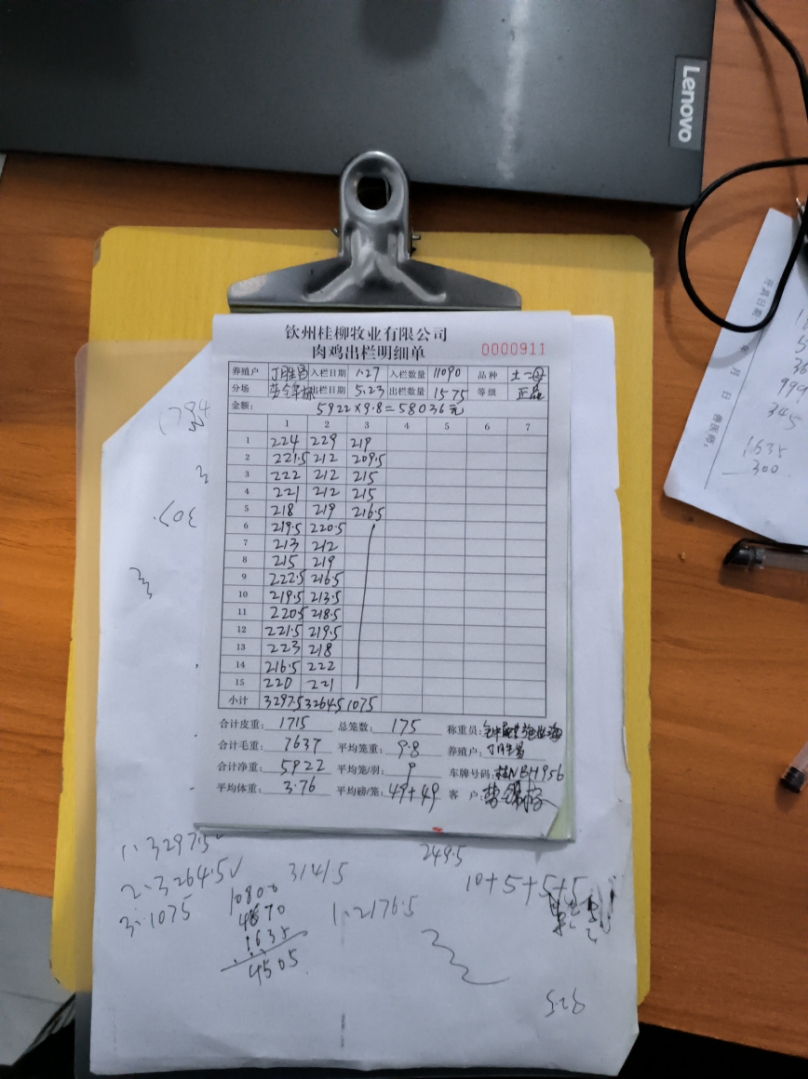 Lenovo
钦州桂柳牧业有限公司
肉鸡出栏明细单 0000911
养殖户 丁胜昌 入栏日期 1.27 入栏数量 11090 品种 土二母
分场 出栏日期 5.23 出栏数量 1575 等级 正品
金额: 5922×9.8=58036元
1 2 3 4 5 6 7
1 224 229 219
2 221.5 212 209.5
3 222 212 215
4 221 212 215
5 218 219 216.5
6 219.5 220.5
7 213 212
8 215 219
9 222.5 216.5
10 219.5 213.5
11 220.5 218.5
12 221.5 219.5
13 223 218
14 216.5 222
15 220 221
小计 3297.5 3264.5 1075
合计皮重: 1715 总笼数: 175 称重员:
合计毛重: 7637 平均笼重: 9.8 养殖户: 丁胜昌
合计净重: 5922 平均笼/羽: 9 车牌号码: 桂NBH956
平均体重: 3.76 平均磅/笼: 49+49 客户:
1: 3297.5
2: 3264.5√
3: 1075
31415
249.5
10+5+5+5
10800
4870
1635
4505
1: 2176.5
5.23
345
1635
300